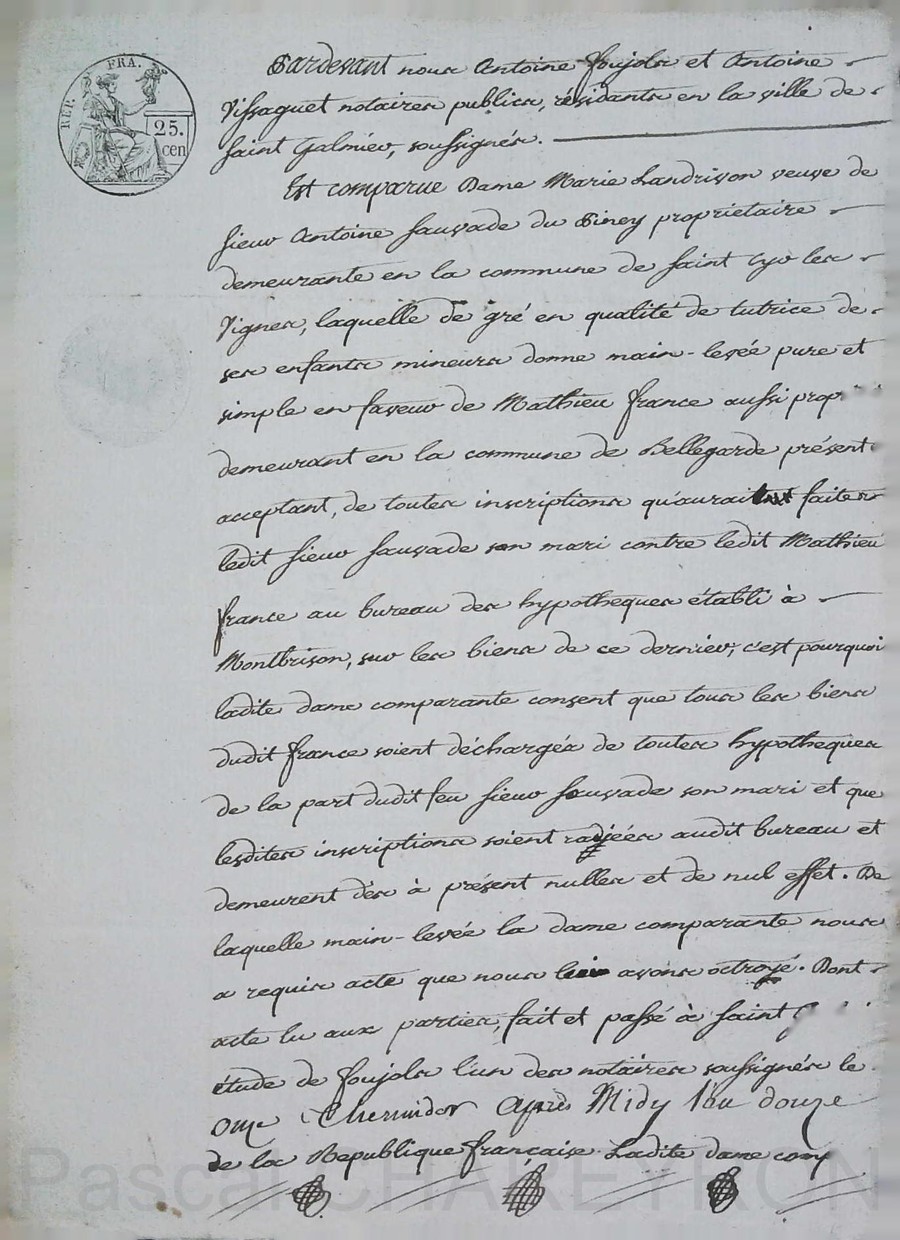 REP. FRA.
25.
cen
Pardevant nous Antoine Foujols et Antoine
Vissaguet notaires publics, résidants en la ville de
Saint Galmier, soussignés.
Est comparue Dame Marie Landrison veuve de
sieur Antoine Sauvade du Piney propriétaire
demeurante en la commune de Saint Cyr les
Vignes, laquelle de gré en qualité de tutrice de
ses enfants mineurs donne main-levée pure et
simple en faveur de Mathieu france aussi prop
demeurant en la commune de Bellegarde présent
acceptant, de toutes inscriptions qu'aurait faites
ledit sieur Sauvade son mari contre ledit Mathieu
france au bureau des hypotheques établi à
Montbrison, sur les biens de ce dernier, c'est pourquoi
ladite dame comparante consent que tous les biens
dudit france soient déchargés de toutes hypotheques
de la part dudit feu sieur Sauvade son mari et que
lesdites inscriptions soient radiées audit bureau et
demeurent dès à présent nulles et de nul effet. De
laquelle main-levée la dame comparante nous
a requis acte que nous lui avons octroyé. Dont
acte lu aux parties, fait et passé à Saint
étude de Foujols l'un des notaires soussignés le
onze Thermidor après Midy l'an douze
de la Republique française. Ladite dame comp
Pascal CHAREYRON